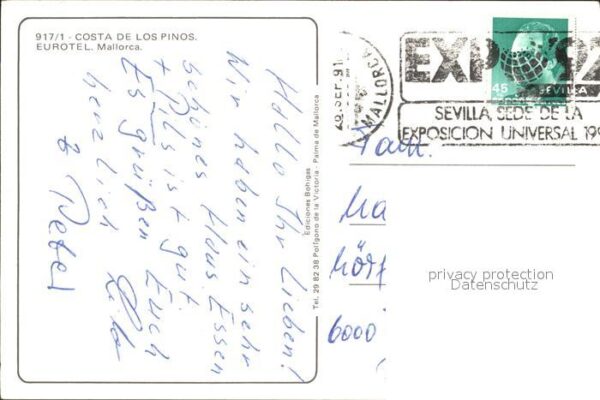 917/1 - COSTA DE LOS PINOS.
EUROTEL. Mallorca.
Hallo Ihr Lieben!
Wir haben ein sehr
schönes Haus. Essen
+ Pils ist gut.
Es grüßen Euch
herzlich
& Peter
Ediciones Bohigas
Tel. 29 82 38 Polígono de la Victoria - Palma de Mallorca
26 SEP. 91
MALLORCA
EXPO'92
SEVILLA
45
SEVILLA, SEDE DE LA
EXPOSICION UNIVERSAL 199
Fam.
Ma
Mörf
6000
privacy protection
Datenschutz